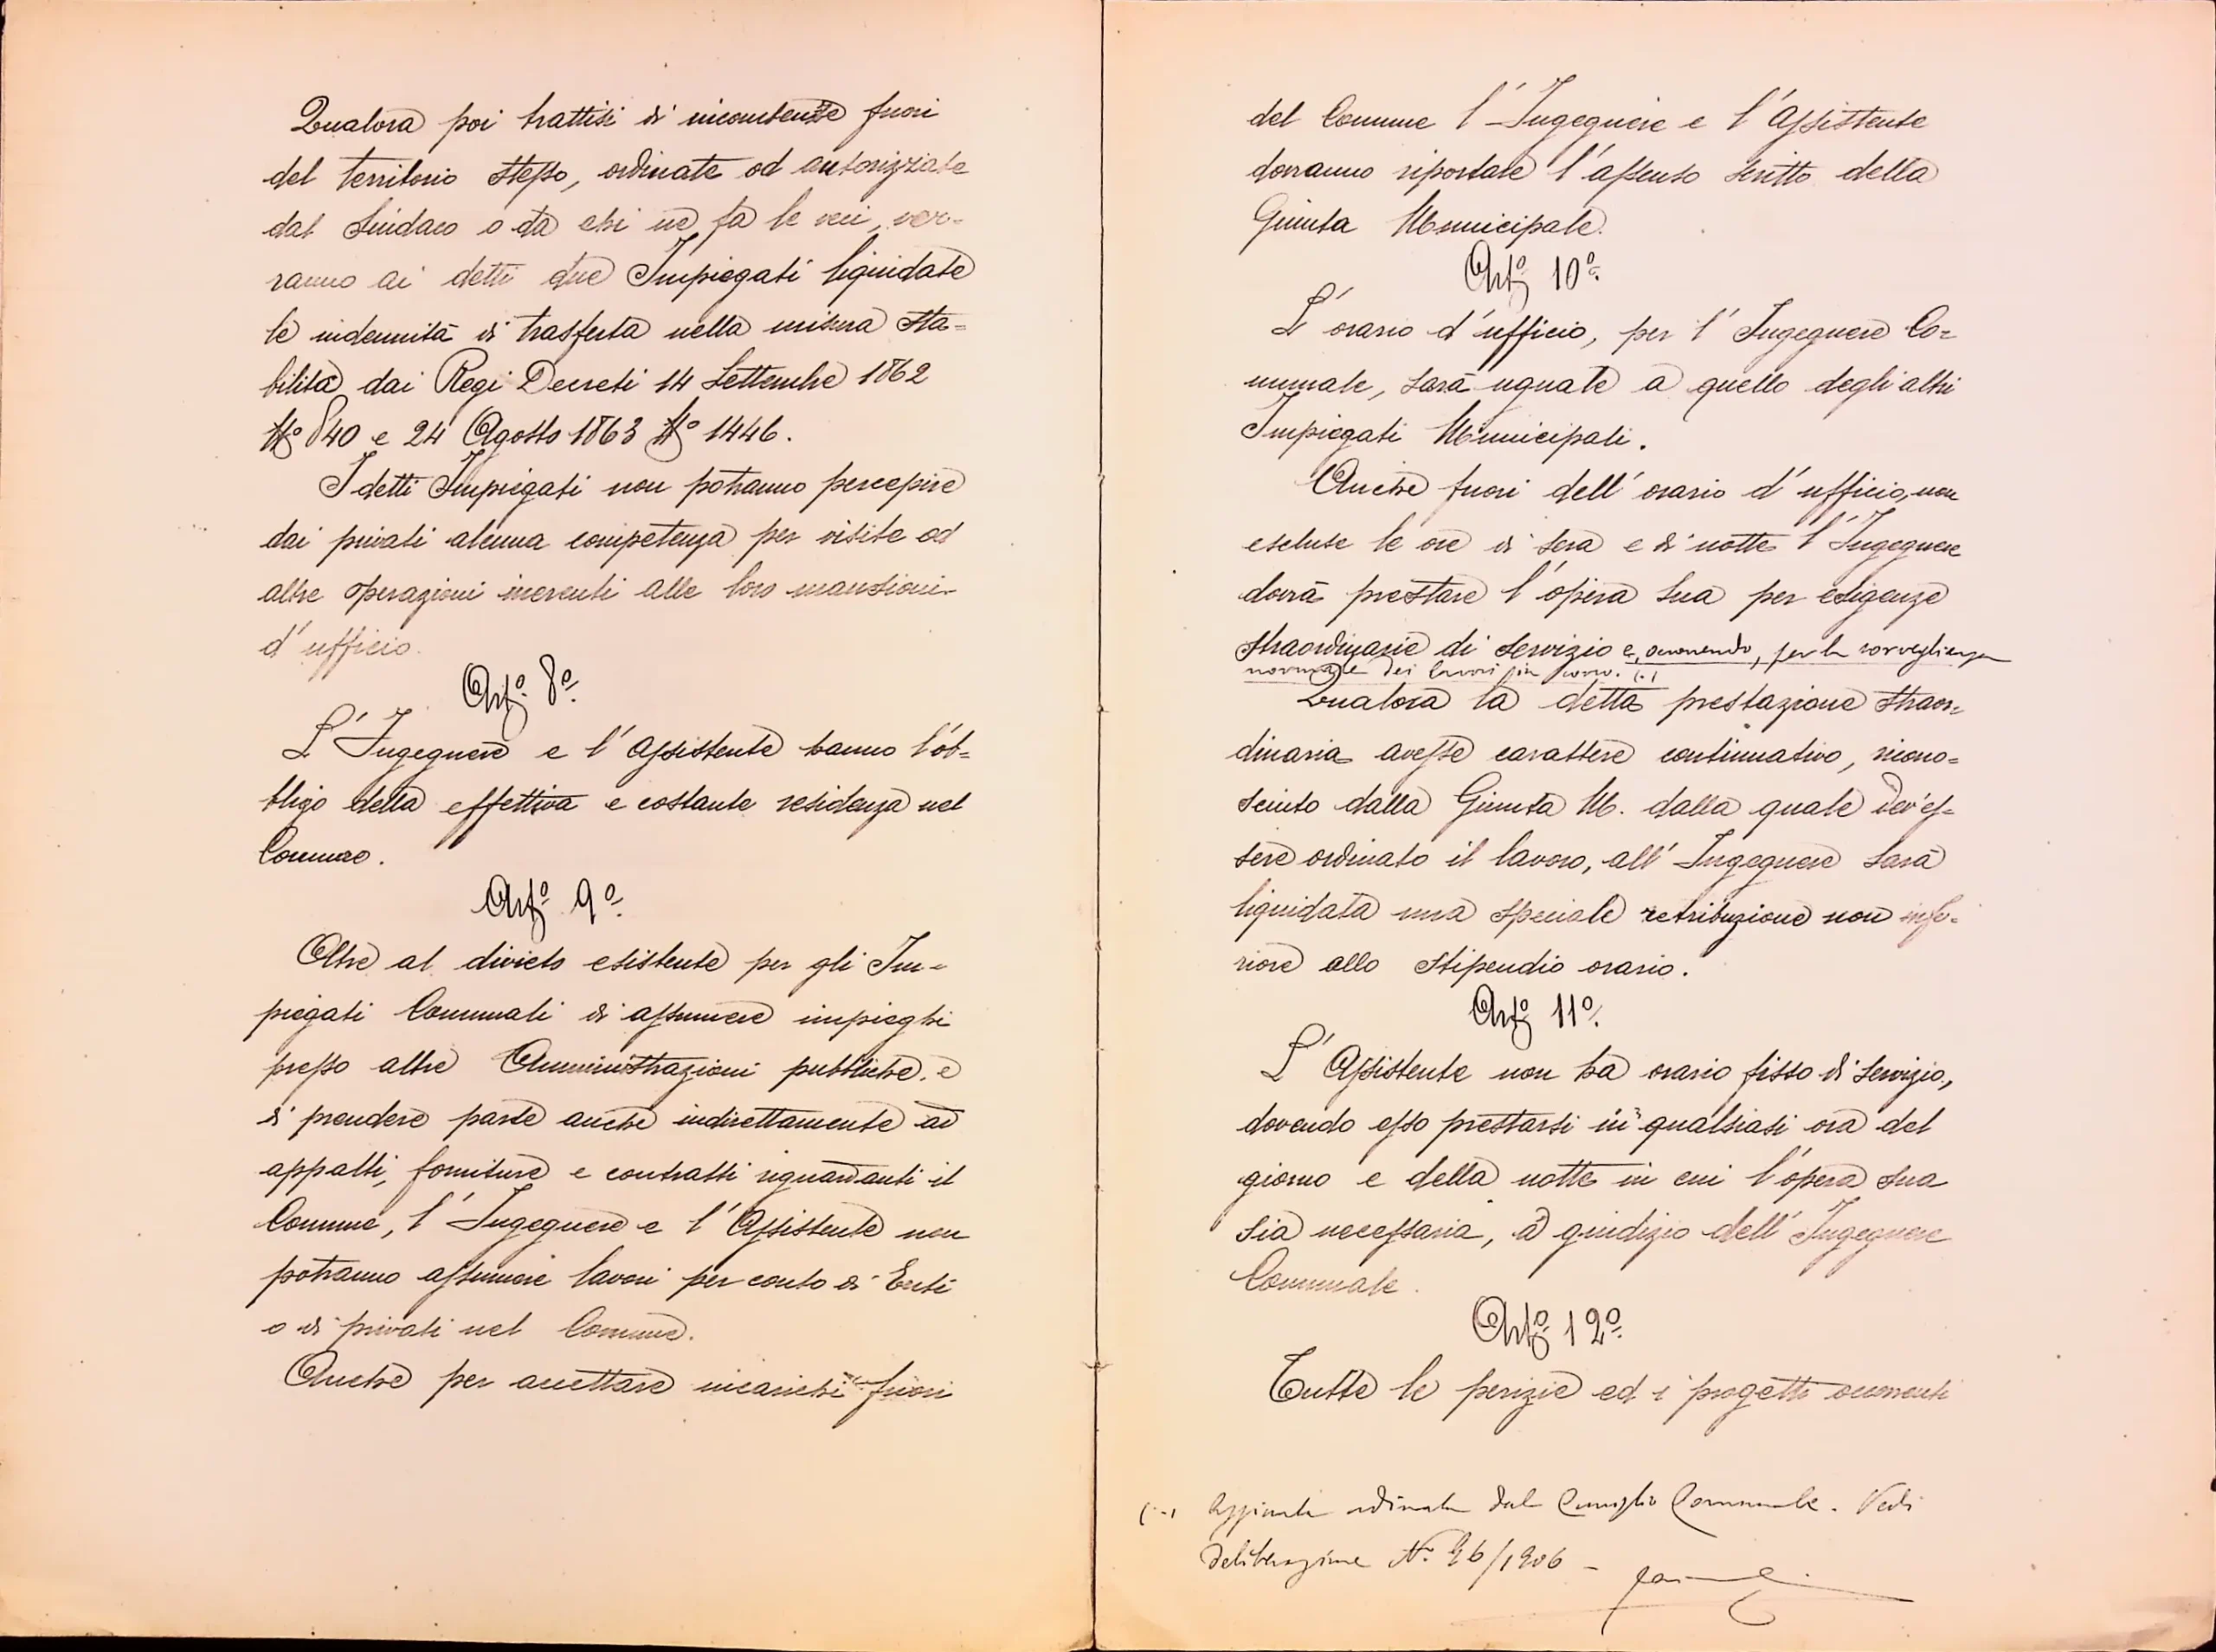 Qualora poi trattisi di incombenze fuori
del territorio stesso, ordinate od autorizzate
dal Sindaco o da chi ne fa le veci, ver=
ranno ai detti due Impiegati liquidate
le indennità di trasferta nella misura sta=
bilita dai Regi Decreti 14 Settembre 1862
N.º 840 e 24 Agosto 1863 N.º 1446.
I detti Impiegati non potranno percepire
dai privati alcuna competenza per visite od
altre operazioni inerenti alle loro mansioni
d'ufficio.
Artº. 8º.
L'Ingegnere e l'Assistente hanno l'ob=
bligo della effettiva e costante residenza nel
Comune.
Artº. 9º.
Oltre al divieto esistente per gli Im=
piegati Comunali di assumere impieghi
presso altre Amministrazioni pubbliche e
di prendere parte anche indirettamente ad
appalti, forniture e contratti riguardanti il
Comune, l'Ingegnere e l'Assistente non
potranno assumere lavori per conto di Enti
o di privati nel Comune.
Anche per accettare incarichi fuori
del Comune l'Ingegnere e l'Assistente
dovranno riportare l'assenso scritto della
Giunta Municipale.
Artº. 10º.
L'orario d'ufficio, per l'Ingegnere Co=
munale, sarà uguale a quello degli altri
Impiegati Municipali.
Anche fuori dell'orario d'ufficio, non
escluse le ore di sera e di notte l'Ingegnere
dovrà prestare l'opera sua per esigenze
straordinarie di servizio e, occorrendo, per la sorveglianza
normale dei lavori in corso. (.)
Qualora la detta prestazione straor=
dinaria avesse carattere continuativo, ricono=
sciuto dalla Giunta M. dalla quale dev'es=
sere ordinato il lavoro, all'Ingegnere sarà
liquidata una speciale retribuzione non infe=
riore allo stipendio orario.
Artº. 11º.
L'Assistente non ha orario fisso di servizio,
dovendo esso prestarsi in qualsiasi ora del
giorno e della notte in cui l'opera sua
sia necessaria, a giudizio dell'Ingegnere
Comunale.
Artº. 12º.
Tutte le perizie ed i progetti occorrenti
(.) Aggiunta ordinata dal Consiglio Comunale. Vedi
deliberazione N.º 96/1906 -